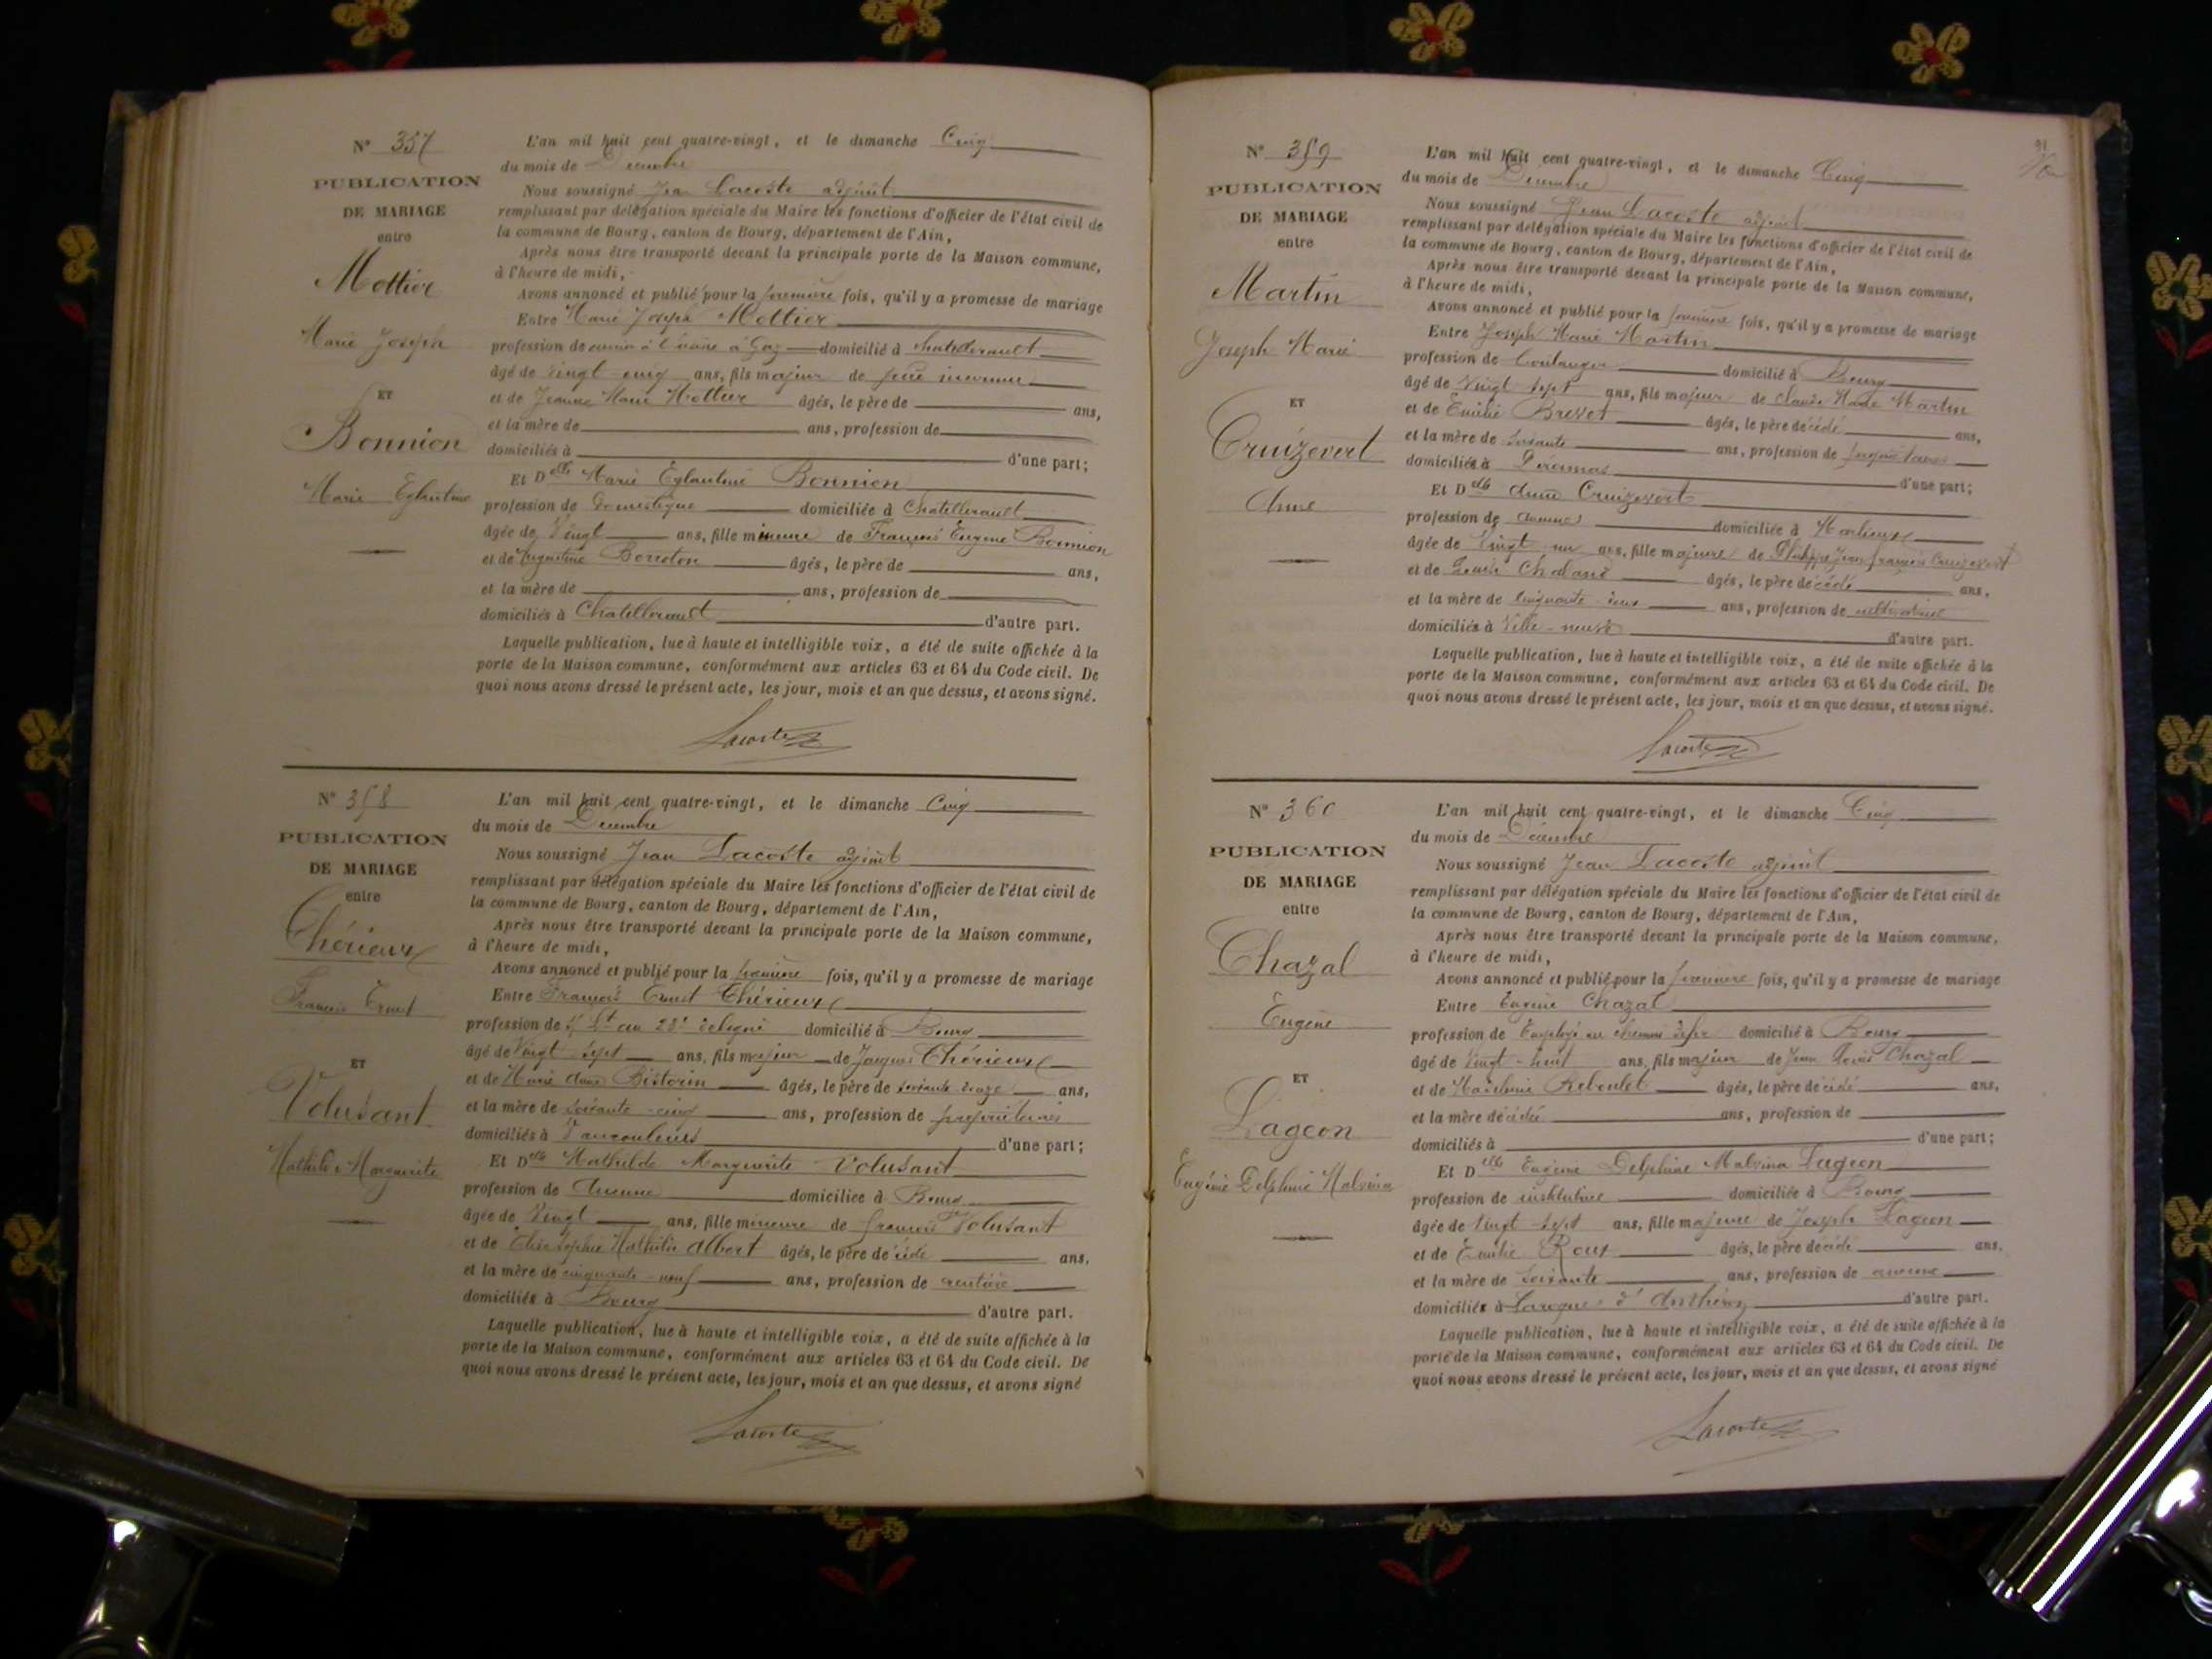 N° 357
PUBLICATION
DE MARIAGE
entre
Mottier
Marie Joseph
ET
Bonnion
Marie Eglantine
L'an mil huit cent quatre-vingt, et le dimanche Cinq
du mois de Décembre
Nous soussigné Jean Lacoste adjoint
remplissant par délégation spéciale du Maire les fonctions d'officier de l'état civil de
la commune de Bourg, canton de Bourg, département de l'Ain,
Après nous être transporté devant la principale porte de la Maison commune,
à l'heure de midi,
Avons annoncé et publié pour la première fois, qu'il y a promesse de mariage
Entre Marie Joseph Mottier
profession de à l'usine à Gaz domicilié à Chatellerault
âgé de Vingt-cinq ans, fils majeur de père inconnu
et de Jeanne Marie Mottier âgés, le père de ans,
et la mère de ans, profession de
domiciliés à d'une part;
Et Dlle Marie Eglantine Bonnion
profession de Domestique domiciliée à Chatellerault
âgée de Vingt ans, fille mineure de François Eugène Bonnion
et de Augustine âgés, le père de ans,
et la mère de ans, profession de
domiciliés à Chatellerault d'autre part.
Laquelle publication, lue à haute et intelligible voix, a été de suite affichée à la
porte de la Maison commune, conformément aux articles 63 et 64 du Code civil. De
quoi nous avons dressé le présent acte, les jour, mois et an que dessus, et avons signé.
Lacoste
N° 358
PUBLICATION
DE MARIAGE
entre
Thérieux
François Ernest
ET
Volusant
Mathilde Marguerite
L'an mil huit cent quatre-vingt, et le dimanche Cinq
du mois de Décembre
Nous soussigné Jean Lacoste adjoint
remplissant par délégation spéciale du Maire les fonctions d'officier de l'état civil de
la commune de Bourg, canton de Bourg, département de l'Ain,
Après nous être transporté devant la principale porte de la Maison commune,
à l'heure de midi,
Avons annoncé et publié pour la première fois, qu'il y a promesse de mariage
Entre François Ernest Thérieux
profession de S. Lt au 23e de ligne domicilié à Bourg
âgé de Vingt-sept ans, fils majeur de Jacques Thérieux
et de Marie Anne Bistorin âgés, le père de soixante-onze ans,
et la mère de soixante-cinq ans, profession de propriétaires
domiciliés à Vaucouleurs d'une part;
Et Dlle Mathilde Marguerite Volusant
profession de Aucune domiciliée à Bourg
âgée de Vingt ans, fille mineure de François Volusant
et de Sophie Mathilde Albert âgés, le père décédé ans,
et la mère de cinquante-neuf ans, profession de rentière
domiciliés à Bourg d'autre part.
Laquelle publication, lue à haute et intelligible voix, a été de suite affichée à la
porte de la Maison commune, conformément aux articles 63 et 64 du Code civil. De
quoi nous avons dressé le présent acte, les jour, mois et an que dessus, et avons signé
Lacoste
91
N° 359
PUBLICATION
DE MARIAGE
entre
Martin
Joseph Marie
ET
Cruizevert
Anne
L'an mil huit cent quatre-vingt, et le dimanche Cinq
du mois de Décembre
Nous soussigné Jean Lacoste adjoint
remplissant par délégation spéciale du Maire les fonctions d'officier de l'état civil de
la commune de Bourg, canton de Bourg, département de l'Ain,
Après nous être transporté devant la principale porte de la Maison commune,
à l'heure de midi,
Avons annoncé et publié pour la première fois, qu'il y a promesse de mariage
Entre Joseph Marie Martin
profession de boulanger domicilié à Bourg
âgé de Vingt-sept ans, fils majeur de Claude Marie Martin
et de Emilie Brevet âgés, le père décédé ans,
et la mère de soixante ans, profession de
domiciliés à d'une part;
Et Dlle Anne Cruizevert
profession de Aucune domiciliée à Marlieux
âgée de Vingt-un ans, fille majeure de Philippe Jean François Cruizevert
et de Louise âgés, le père décédé ans,
et la mère de cinquante-deux ans, profession de cultivatrice
domiciliés à Ville-neuve d'autre part.
Laquelle publication, lue à haute et intelligible voix, a été de suite affichée à la
porte de la Maison commune, conformément aux articles 63 et 64 du Code civil. De
quoi nous avons dressé le présent acte, les jour, mois et an que dessus, et avons signé.
Lacoste
N° 360
PUBLICATION
DE MARIAGE
entre
Chazal
Eugène
ET
Lageon
Eugénie Delphine Malvina
L'an mil huit cent quatre-vingt, et le dimanche Cinq
du mois de Décembre
Nous soussigné Jean Lacoste adjoint
remplissant par délégation spéciale du Maire les fonctions d'officier de l'état civil de
la commune de Bourg, canton de Bourg, département de l'Ain,
Après nous être transporté devant la principale porte de la Maison commune,
à l'heure de midi,
Avons annoncé et publié pour la première fois, qu'il y a promesse de mariage
Entre Eugène Chazal
profession de Employé au chemin de fer domicilié à Bourg
âgé de Vingt-huit ans, fils majeur de Jean Louis Chazal
et de Madeleine Reboulet âgés, le père décédé ans,
et la mère décédée ans, profession de
domiciliés à d'une part;
Et Dlle Eugénie Delphine Malvina Lageon
profession de institutrice domiciliée à Bourg
âgée de Vingt-sept ans, fille majeure de Joseph Lageon
et de Emilie Roux âgés, le père décédé ans,
et la mère de soixante ans, profession de aucune
domiciliés à Laroque d'Anthéron d'autre part.
Laquelle publication, lue à haute et intelligible voix, a été de suite affichée à la
porte de la Maison commune, conformément aux articles 63 et 64 du Code civil. De
quoi nous avons dressé le présent acte, les jour, mois et an que dessus, et avons signé
Lacoste